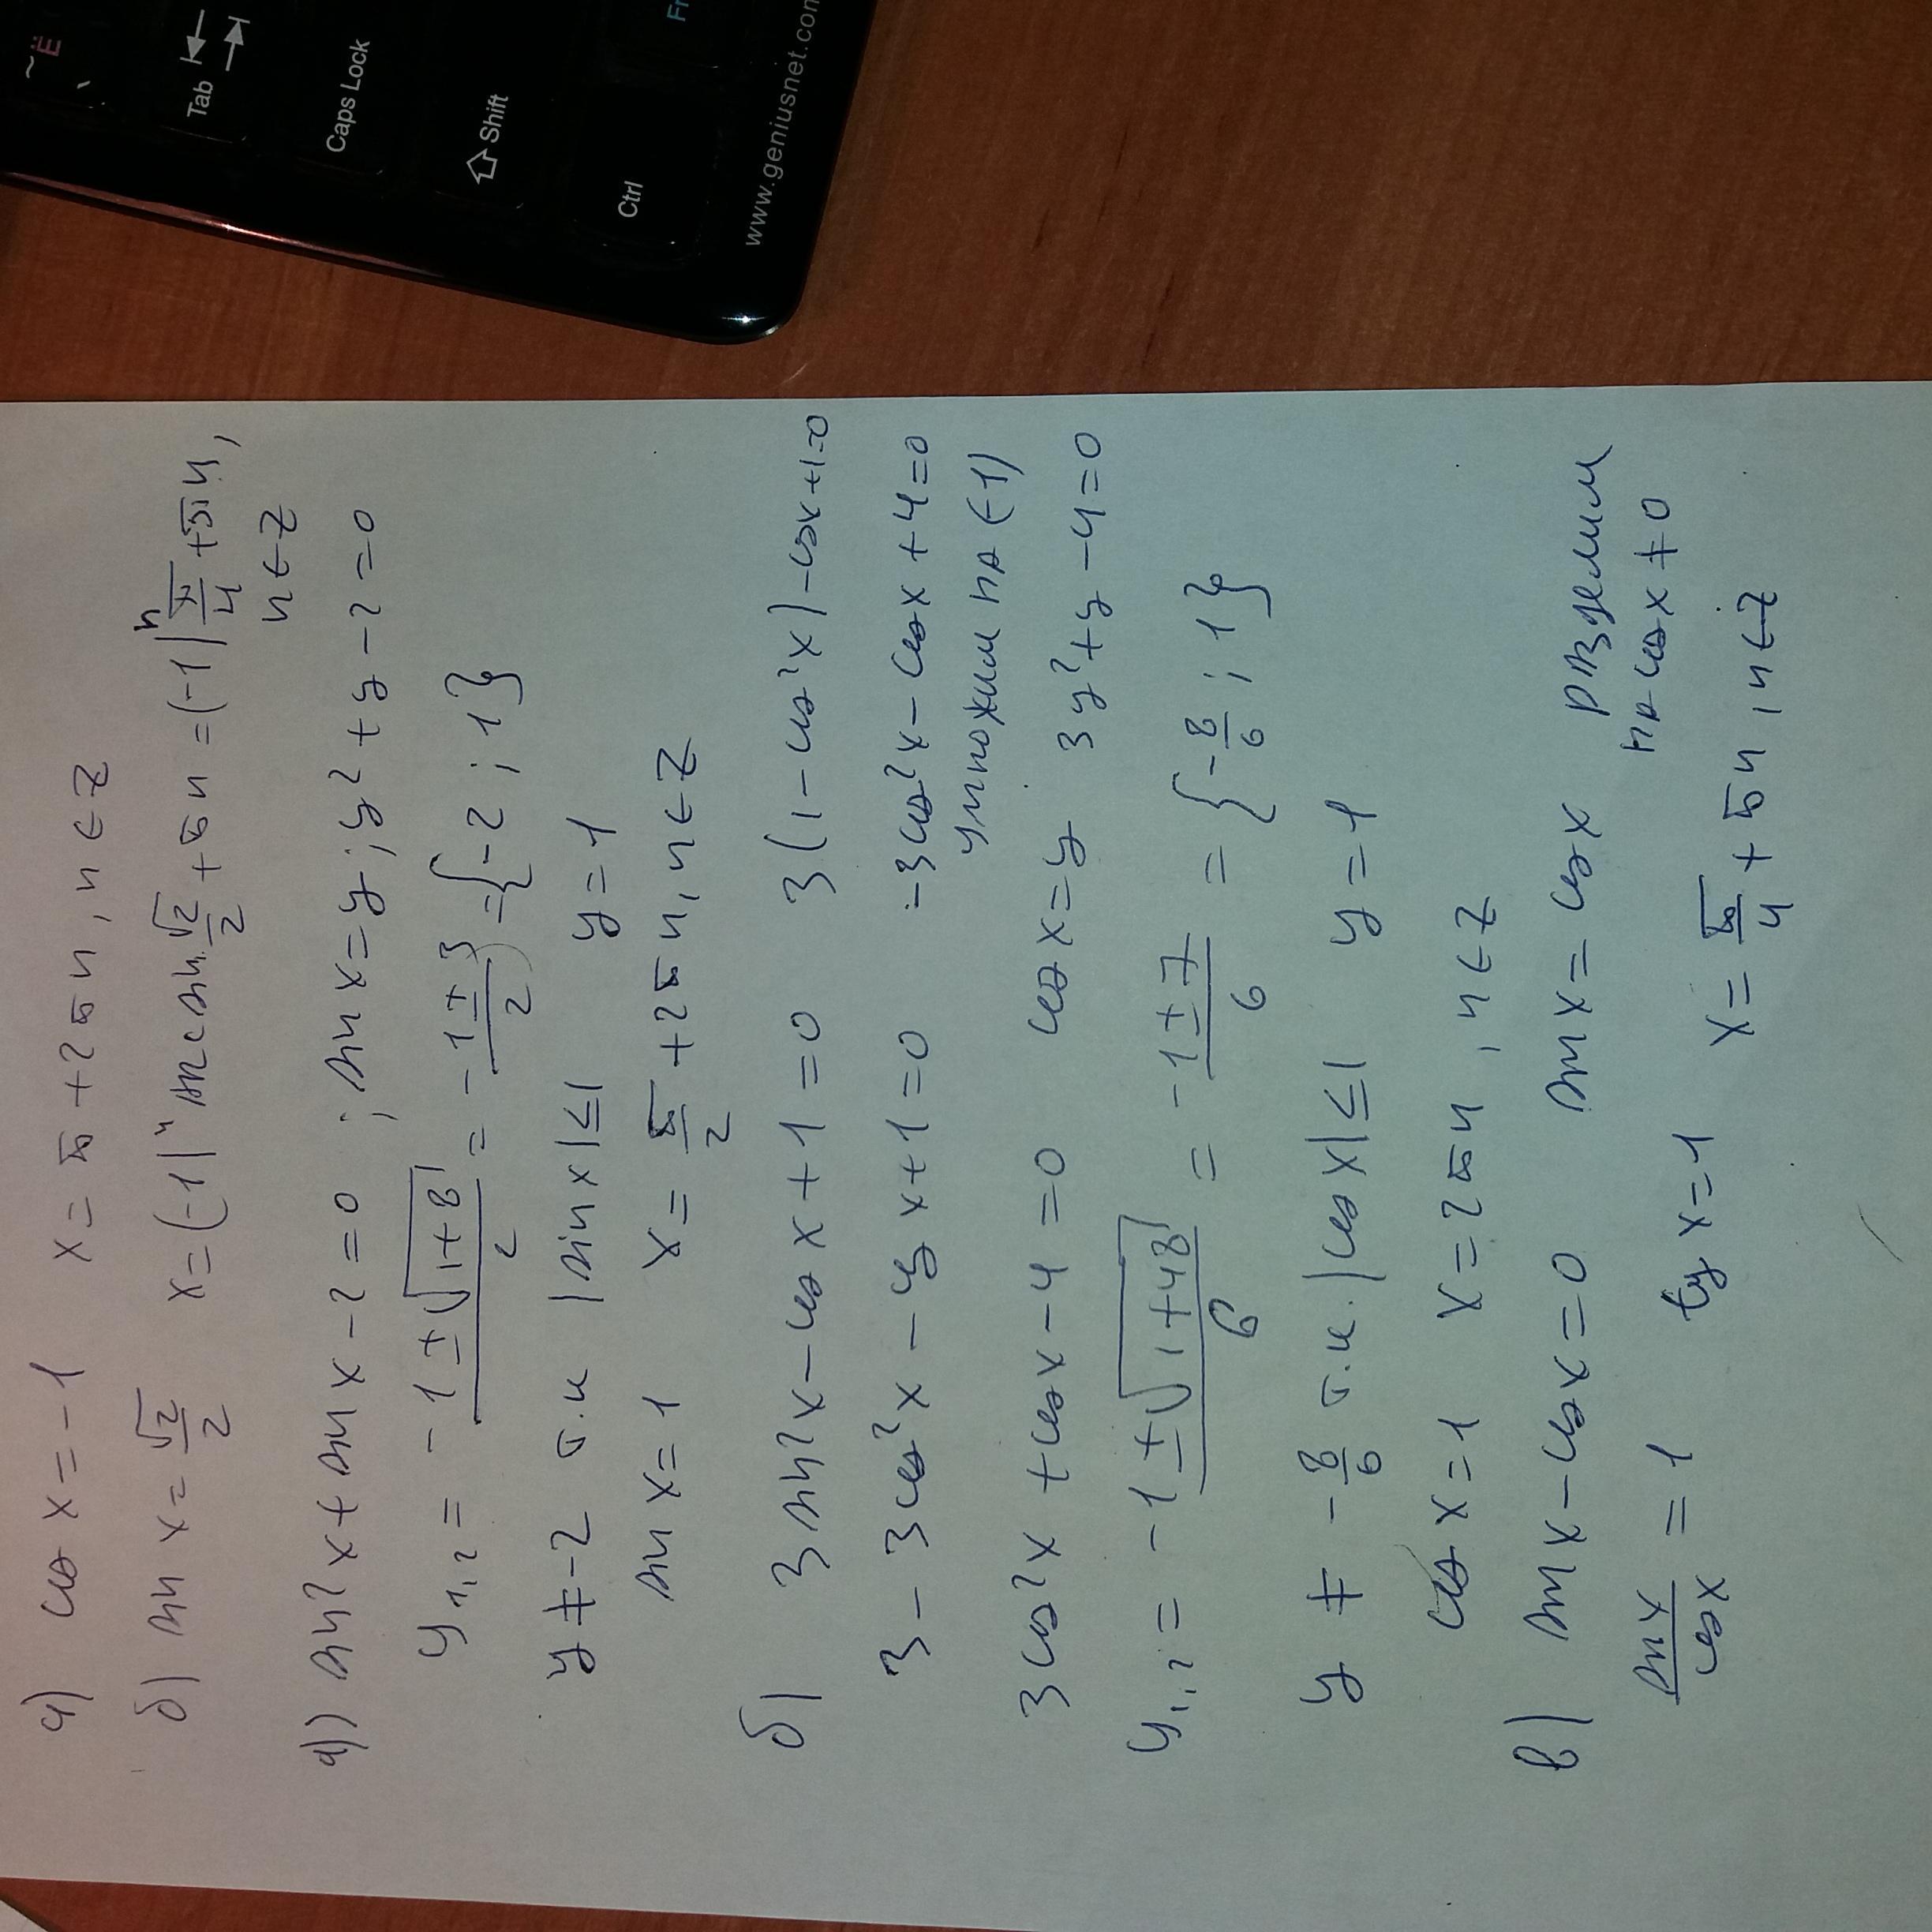 ~ Ё
`
Tab
Caps Lock
Shift
Ctrl
Fn
www.geniusnet.com
а) cos x = -1 x = π + 2πn, n ∈ Z
б) sin x = √2/2 x = (-1)ⁿ arcsin √2/2 + πn = (-1)ⁿ π/4 + πn,
n ∈ Z
а) sin²x + sin x - 2 = 0 ; sin x = y ; y² + y - 2 = 0
y₁,₂ = (-1 ± √(1+8))/2 = (-1 ± 3)/2 = {-2 ; 1}
y ≠ -2 т.к |sin x| ≤ 1 y = 1
sin x = 1 x = π/2 + 2πn, n ∈ Z
б) 3 sin²x - cos x + 1 = 0 3(1 - cos²x) - cos x + 1 = 0
3 - 3 cos²x - y x + 1 = 0 -3 cos²x - cos x + 4 = 0
умножим на (-1)
3 cos²x + cos x - 4 = 0 cos x = y 3y² + y - 4 = 0
y₁,₂ = (-1 ± √(1+48))/6 = (-1 ± 7)/6 = {-8/6 ; 1}
y ≠ -8/6 т.к. |cos x| ≤ 1 y = 1
cos x = 1 x = 2πn, n ∈ Z
в) sin x - cos x = 0 sin x = cos x разделим
на cos x ≠ 0
sin x/cos x = 1 tg x = 1 x = π/4 + πn, n ∈ Z